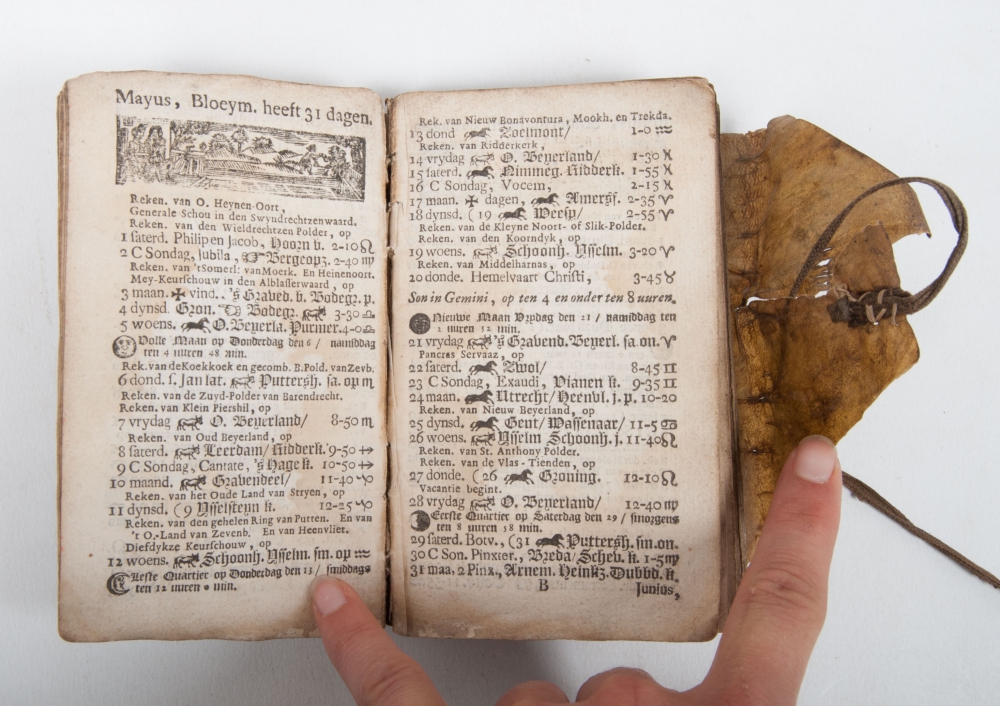 Mayus, Bloeym. heeft 31 dagen.
Reken. van O. Heynen-Oort,
Generale Schou in den Swyndrechtzenwaard.
Reken. van den Wieldrechtzen Polder, op
1 saterd. Philip en Jacob, Hoorn v. 2-10 ♌
2 C Sondag, Jubila, Bergeopz. 2-40 ♍
Reken. van 'tSomerl. van Moerk. En Heinenoort.
Mey-Keurschouw in den Alblasserwaard, op
3 maan. ✠ vind. 's Graved. v. Bodegr. p.
4 dynsd. Gron. Bodegr. 3-30 ♎
5 woens. O. Beyerla. Purmer. 4-0 ♎
Volle Maan op Donderdag den 6 / namiddag
ten 4 uuren 48 min.
Rek. van de Koekkoek en gecomb. B. Pold. van Zevb.
6 dond. s. Jan lat. Puttersh. sa. op ♏
Reken. van de Zuyd-Polder van Barendrecht.
Reken. van Klein Piershil, op
7 vrydag O. Beyerland/ 8-50 ♏
Reken. van Oud Beyerland, op
8 saterd. Leerdam/ Ridderk. 9-50 ♐
9 C Sondag, Cantate, 's Hage k. 10-50 ♐
10 maand. Gravendeel/ 11-40 ♑
Reken. van het Oude Land van Stryen, op
11 dynsd. (9 Ysselsteyn k. 12-25 ♑
Reken. van den gehelen Ring van Putten. En van
't O.-Land van Zevenb. En van Heenvliet.
Diefdykze Keurschouw, op
12 woens. Schoonh. Ysselm. sm. op ♒
Quartier op Donderdag den 13 / smiddags
ten 12 uuren 0 min.
Rek. van Nieuw Bonavontura, Mookh. en Trekda.
13 dond Zoelmont/ 1-0 ♒
Reken. van Ridderkerk,
14 vrydag O. Beyerland/ 1-30 ♓
15 saterd. Nimmeg. Ridderk. 1-55 ♓
16 C Sondag, Vocem, 2-15 ♓
17 maan. ✠ dagen, Amersf. 2-35 ♈
18 dynsd. (19 Weesp/ 2-55 ♈
Reken. van de Kleyne Noort- of Slik-Polder.
Reken. van den Koorndyk, op
19 woens. Schoonh. Ysselm. 3-20 ♈
Reken. van Middelharnas, op
20 donde. Hemelvaart Christi, 3-45 ♉
Son in Gemini, op ten 4 en onder ten 8 uuren.
Nieuwe Maan Vrydag den 21 / namiddag ten
2 uuren 32 min.
21 vrydag 's Gravend. Beyerl. sa. on. ♈
Pancras Servaaz, op
22 saterd. Zwol/ 8-45 ♊
23 C Sondag, Exaudi, Vianen k. 9-35 ♊
24 maan. Utrecht/ Heenvl. j. p. 10-20
Reken. van Nieuw Beyerland, op
25 dynsd. Gent/ Wassenaar/ 11-5 ♋
26 woens. Ysselm Schoonh. j. 11-40 ♌
Reken. van St. Anthony Polder.
Reken. van de Vlas-Tienden, op
27 donde. (26 Groning. 12-10 ♌
Vacantie begint.
28 vrydag O. Beyerland/ 12-40 ♍
Eerste Quartier op Saterdag den 29 / smorgens
ten 8 uuren 58 min.
29 saterd. Botv., (31 Puttersh. sm. on.
30 C Son. Pinxter., Breda/ Scheb. k. 1-5 ♍
31 maa. 2 Pinx., Arnem. Heinkz. Dubbd. k.
B Junius,